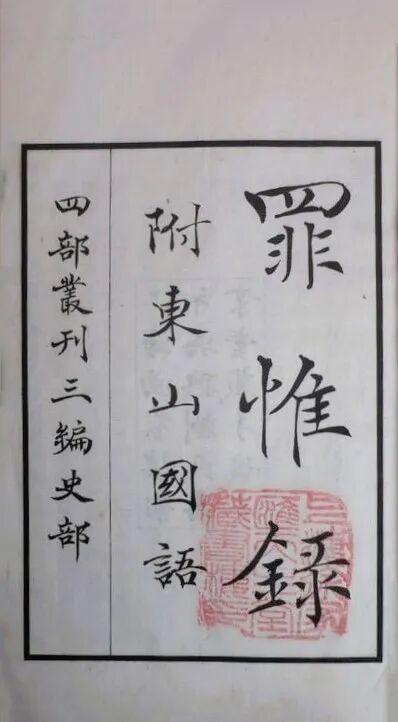 罪惟錄
附東山國語
四部叢刊三編史部